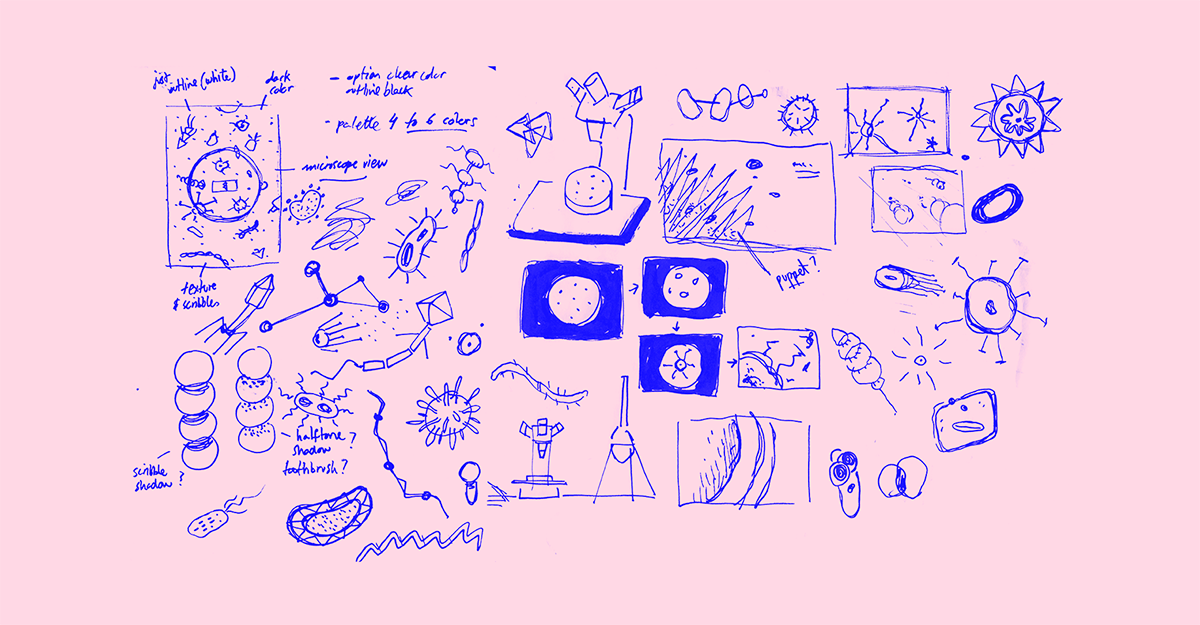 just
outline (white)
dark
color
- option clear color
outline black
- palette 4 to 6 colors
microscope view
texture
& scribbles
puppet?
halftone ?
shadow
toothbrush?
scribble
shadow ?